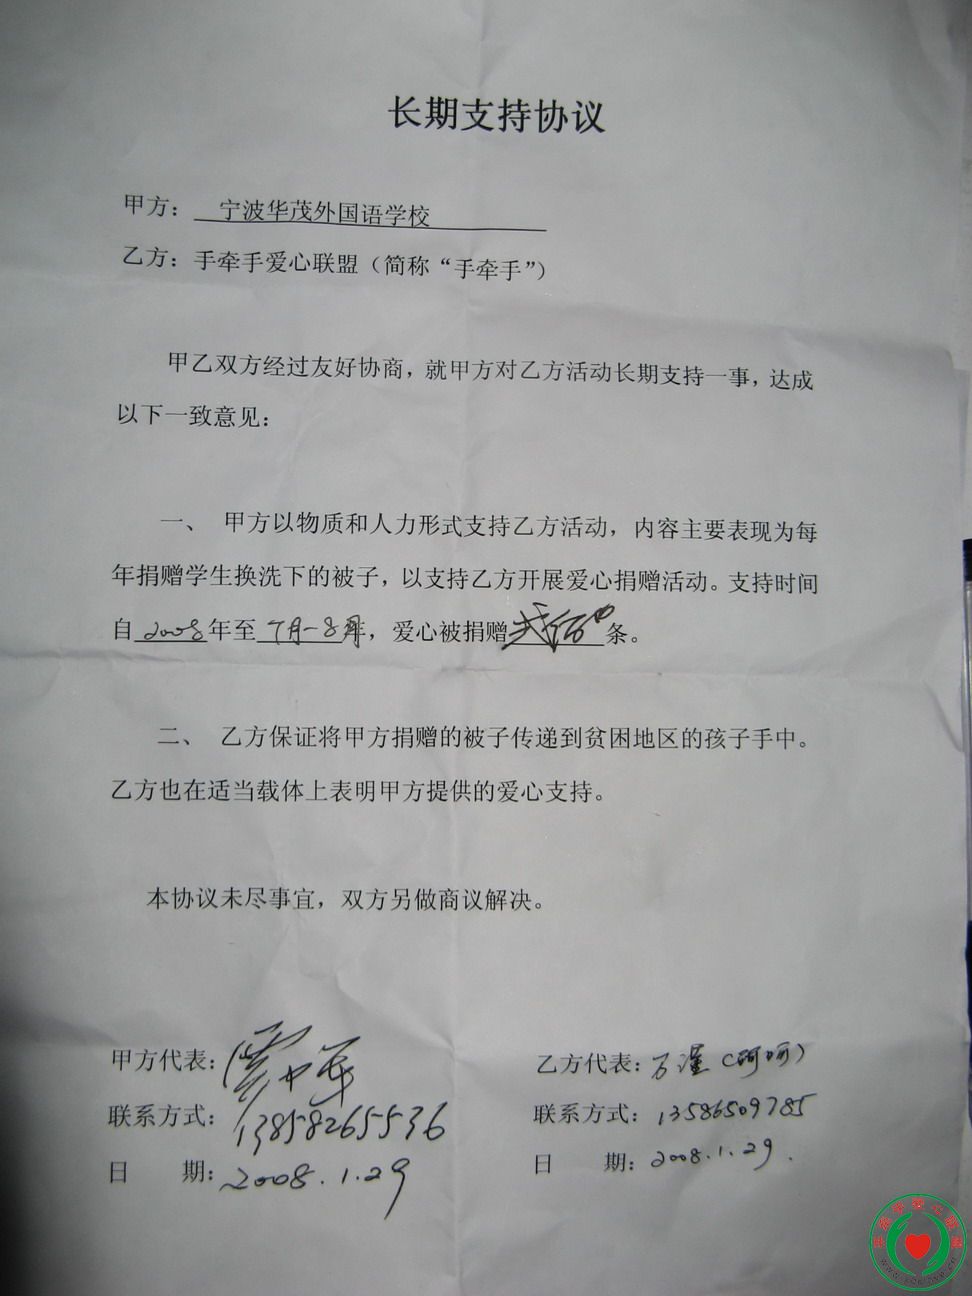 长期支持协议
甲方：宁波华茂外国语学校
乙方：手牵手爱心联盟（简称“手牵手”）
甲乙双方经过友好协商，就甲方对乙方活动长期支持一事，达成
以下一致意见：
一、 甲方以物质和人力形式支持乙方活动，内容主要表现为每
年捐赠学生换洗下的被子，以支持乙方开展爱心捐赠活动。支持时间
自2008年至7月-8月，爱心被捐赠条。
二、 乙方保证将甲方捐赠的被子传递到贫困地区的孩子手中。
乙方也在适当载体上表明甲方提供的爱心支持。
本协议未尽事宜，双方另做商议解决。
甲方代表：
联系方式：13858265536
日 期：2008.1.29
乙方代表：
联系方式：13586509785
日 期：2008.1.29.